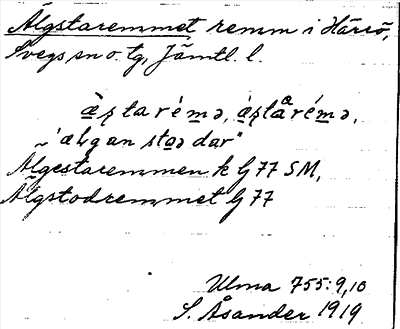 Älgstaremmet, remm i Härrö,
Svegs sn o. tg, Jämtl. l.
æ̀ștarémə, æ̀ștåré̄mə,
~ "æłgan stoədar"
Älgestaremmen k G 77 SM,
Älgstodremmet G 77
Ulma 755:9,10
S. Åsander 1919